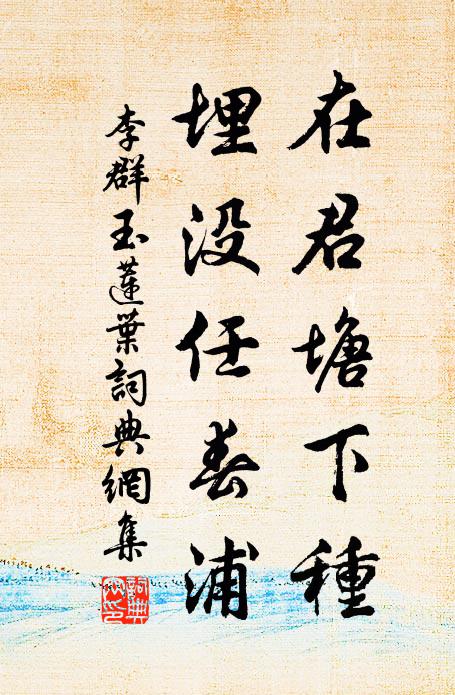 在君塘下種
埋没任春浦
李群玉蓮葉詞典網集